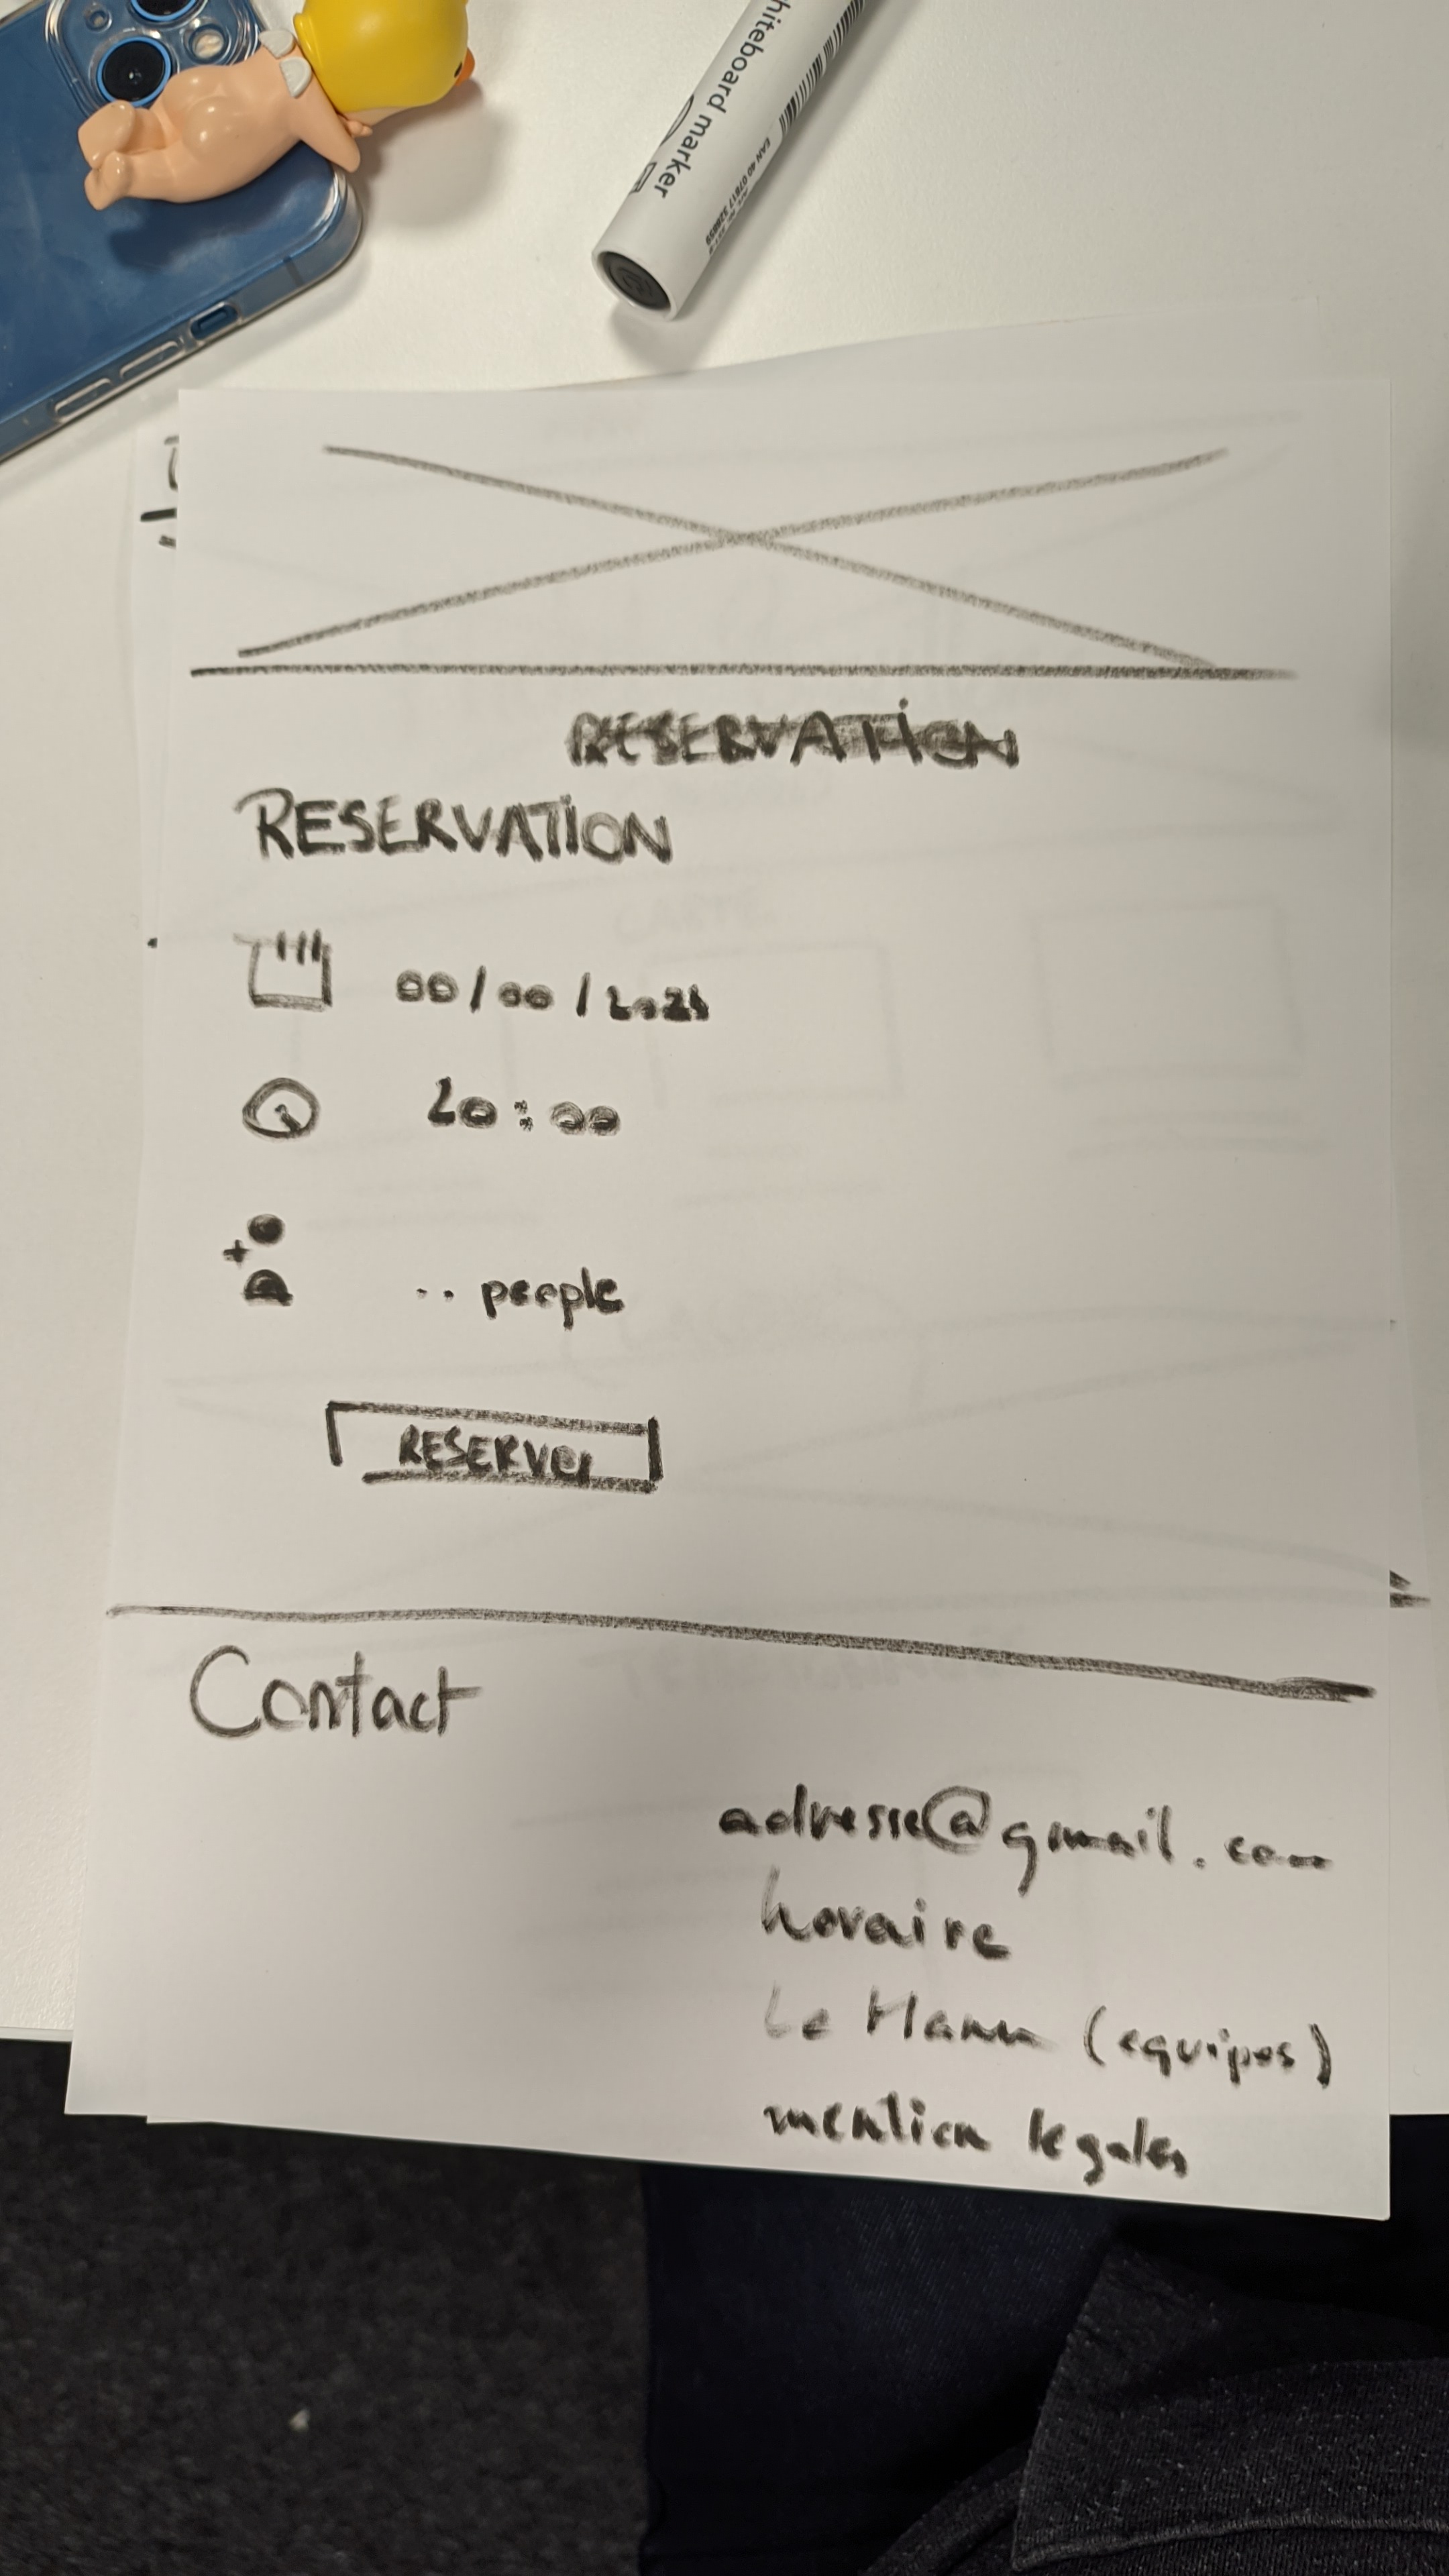 hiteboard marker
EAN 40 07817 328859
RESERVATION
RESERVATION
00/00/202
20:00
.. people
RESERVER
Contact
adresse@gmail.com
horaire
Le (equipes)
mention legales